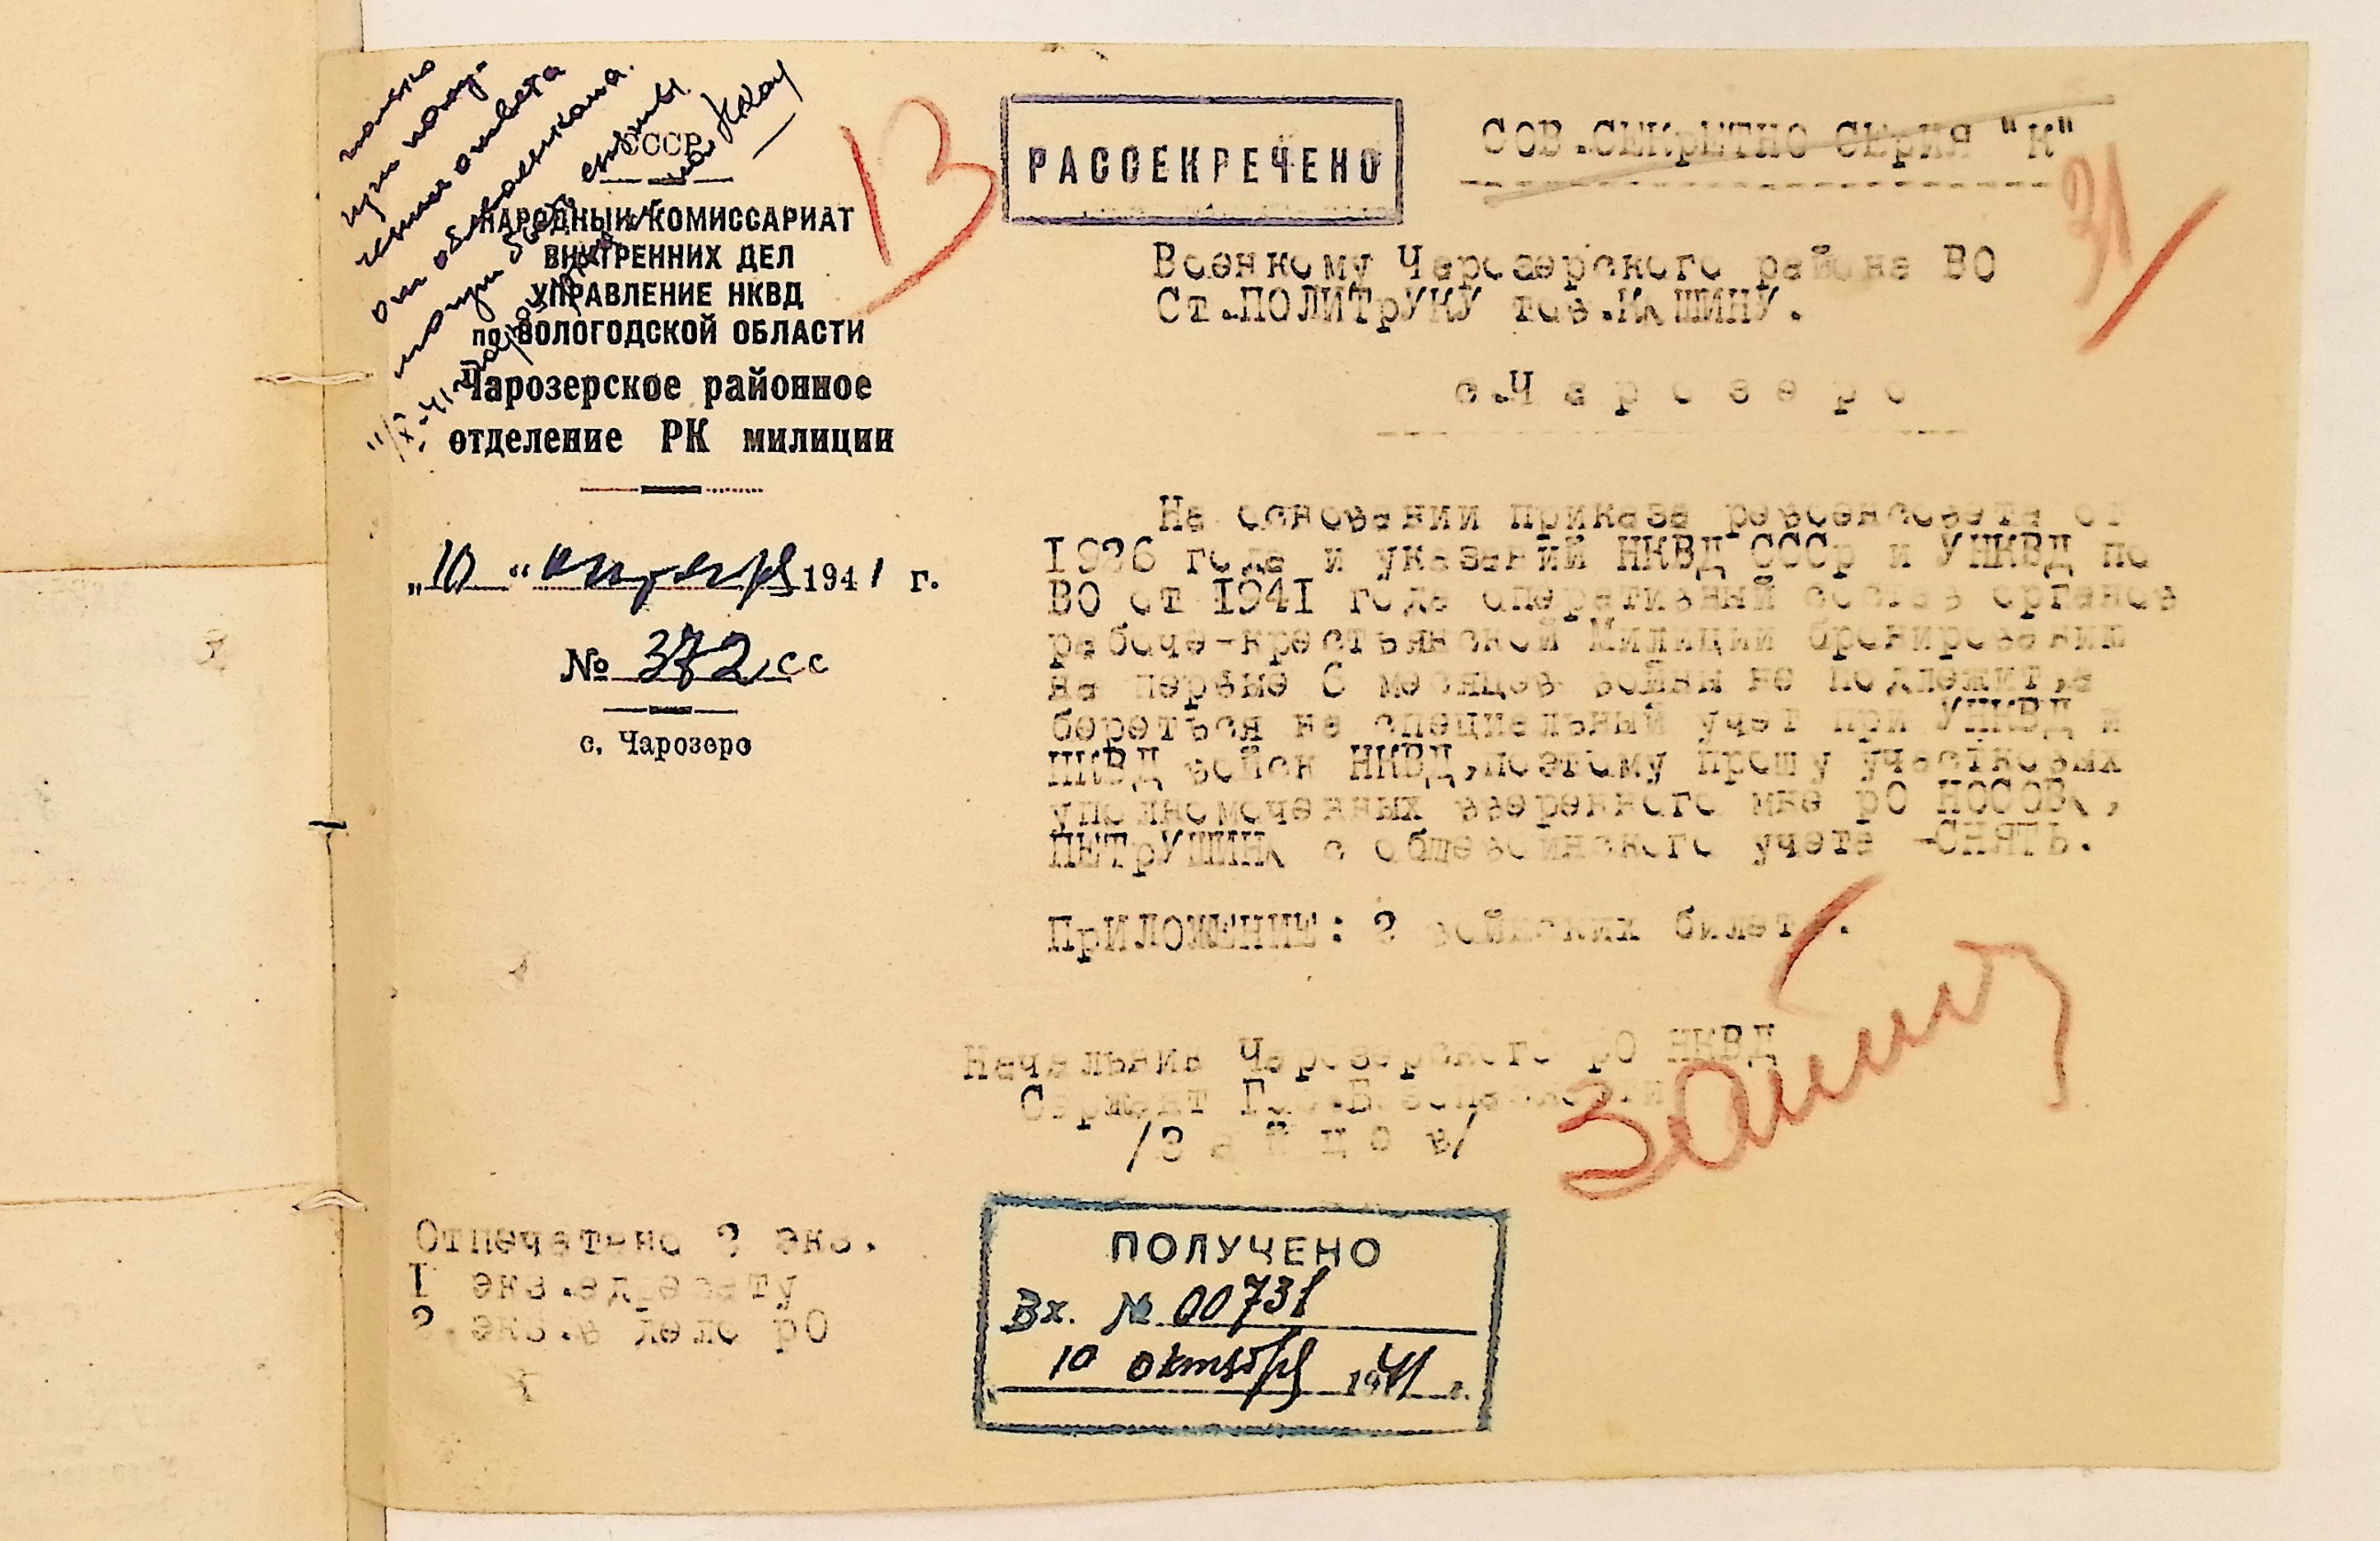 только
при полу-
чении ответа
от облвоенкома.
могут быть сняты
СССР
НАРОДНЫЙ КОМИССАРИАТ
ВНУТРЕННИХ ДЕЛ
УПРАВЛЕНИЕ НКВД
по ВОЛОГОДСКОЙ ОБЛАСТИ
Чарозерское районное
отделение РК милиции
„10“ 1941 г.
№ 372 сс
с. Чарозеро
13
РАССЕКРЕЧЕНО
СОВ.СЕКрЕТНО СЕрИЯ "К"
31
Военкому Чарозерского района ВО
Ст.ПОЛИТрУКУ тов.КАШИНУ.
с.Ч а р о з е р о
На основании приказа реввоенсовета от
1926 года и указаний НКВД СССр и УНКВД по
ВО от 1941 года оперативный состав органов
рабоче-крестьянской Милиции бронированию
на первые 6 месяцев войны не подлежит,а
береться на специальный учет при УНКВД и
НКВД войск НКВД,поэтому прошу участковых
уполномоченных вверенного мне рО НОСОВА,
ПЕТрУШИНА с общевоинского учета -СНЯТЬ.
ПрИЛОЖЕНИЕ: 2 воинских билета.
Начальник Чарозерского рО НКВД
Сержант Гос.Безопасности
/З а й ц о в/
Отпечатано 2 экз.
I экз.адресату
2.экз.в дело рО
ПОЛУЧЕНО
Вх. № 00731
10 октября 1941 г.